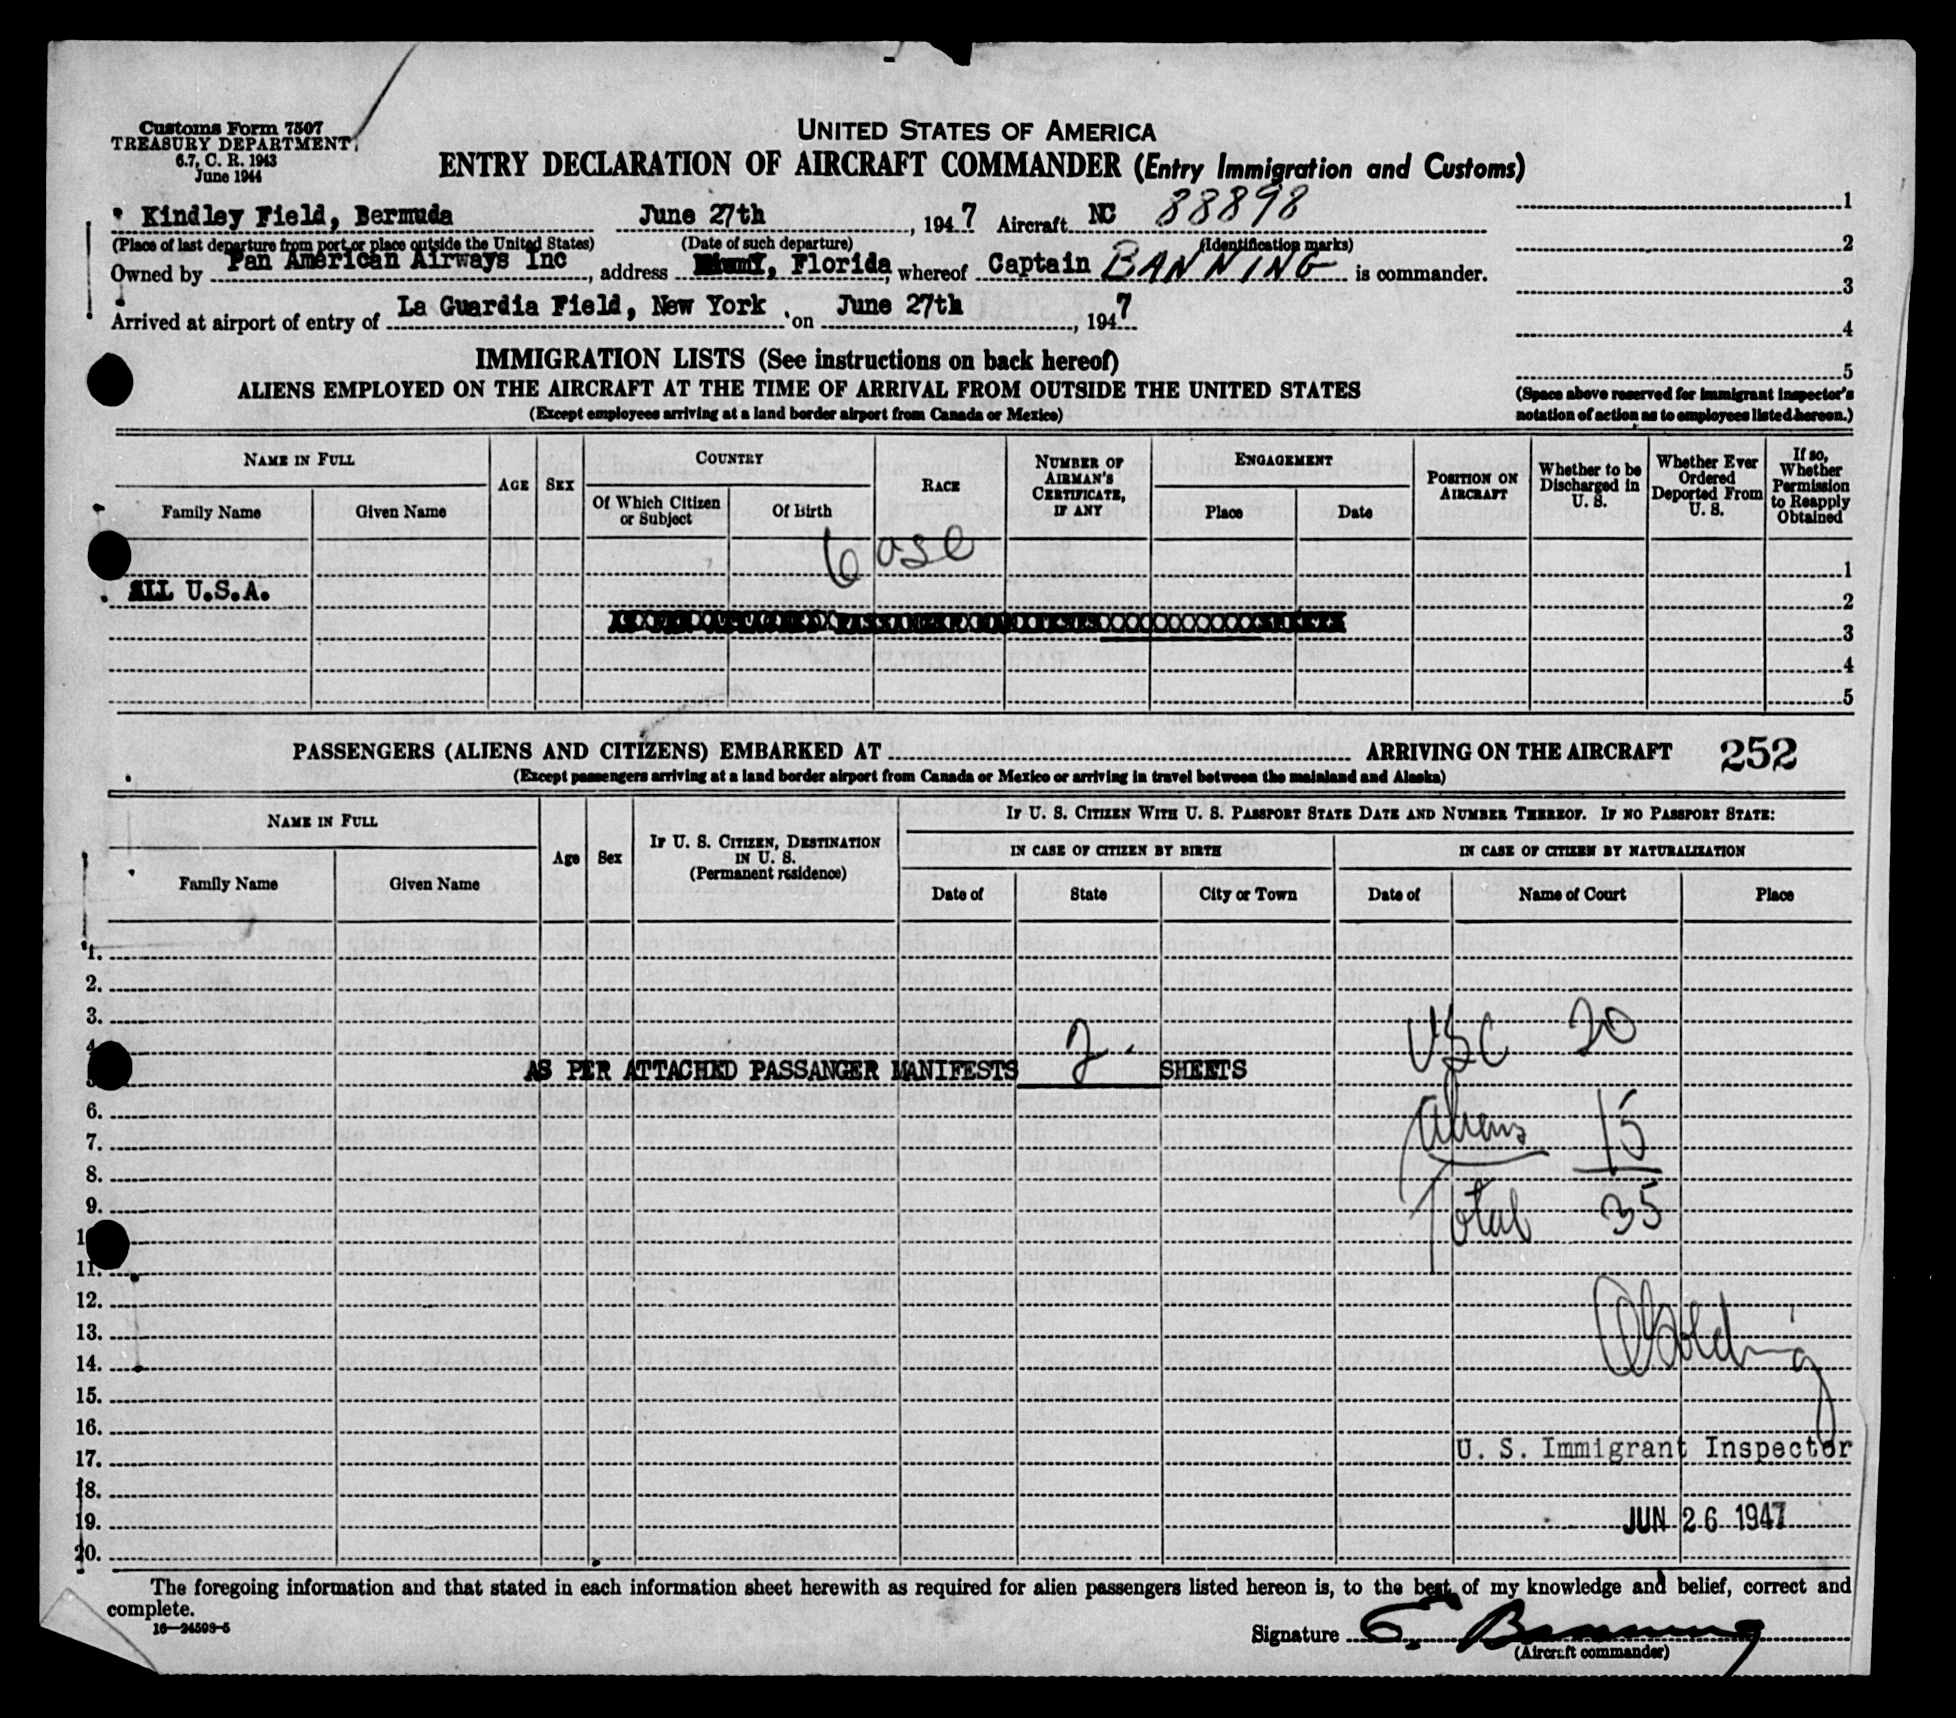 Customs Form 7507
TREASURY DEPARTMENT
6.7, C. R. 1943
June 1944
UNITED STATES OF AMERICA
ENTRY DECLARATION OF AIRCRAFT COMMANDER (Entry Immigration and Customs)
Kindley Field, Bermuda June 27th, 1947 Aircraft NC 88898
(Place of last departure from port or place outside the United States) (Date of such departure) (Identification marks)
Owned by Pan American Airways Inc, address Miami, Florida, whereof Captain BANNING is commander.
Arrived at airport of entry of La Guardia Field, New York on June 27th, 1947
1
2
3
4
5
(Space above reserved for immigrant inspector's
notation of action as to employees listed hereon.)
IMMIGRATION LISTS (See instructions on back hereof)
ALIENS EMPLOYED ON THE AIRCRAFT AT THE TIME OF ARRIVAL FROM OUTSIDE THE UNITED STATES
(Except employees arriving at a land border airport from Canada or Mexico)
NAME IN FULL
Family Name Given Name
AGE SEX
COUNTRY
Of Which Citizen or Subject
Of Birth
RACE
NUMBER OF AIRMAN'S CERTIFICATE, IF ANY
ENGAGEMENT
Place Date
POSITION ON AIRCRAFT
Whether to be Discharged in U. S.
Whether Ever Ordered Deported From U. S.
If so, Whether Permission to Reapply Obtained
6 USC
1
ALL U.S.A.
2
3
4
5
PASSENGERS (ALIENS AND CITIZENS) EMBARKED AT ARRIVING ON THE AIRCRAFT 252
(Except passengers arriving at a land border airport from Canada or Mexico or arriving in travel between the mainland and Alaska)
NAME IN FULL
Family Name Given Name
Age Sex
IF U. S. CITIZEN, DESTINATION IN U. S.
(Permanent residence)
IF U. S. CITIZEN WITH U. S. PASSPORT STATE DATE AND NUMBER THEREOF. IF NO PASSPORT STATE:
IN CASE OF CITIZEN BY BIRTH IN CASE OF CITIZEN BY NATURALIZATION
Date of State City or Town Date of Name of Court Place
1.
2.
3. USC 20
4.
AS PER ATTACHED PASSANGER MANIFESTS 2 SHEETS
6.
7. Aliens 15
8.
9. Total 35
11.
12.
13.
14.
15.
16.
17. U. S. Immigrant Inspector
18.
19. JUN 26 1947
20.
The foregoing information and that stated in each information sheet herewith as required for alien passengers listed hereon is, to the best of my knowledge and belief, correct and
complete.
16—24503-5
Signature E. Banning
(Aircraft commander)